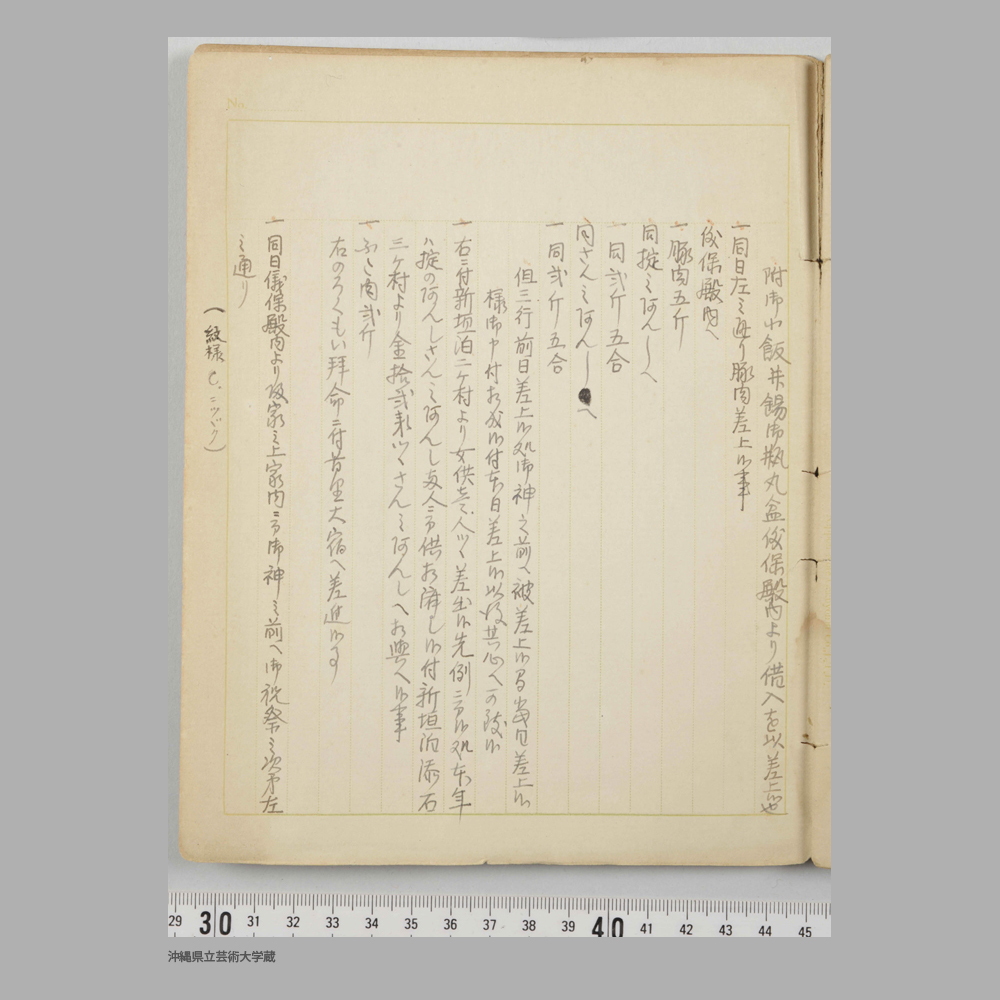 附御小飯并錫御瓶丸盆儀保殿内より借入を以差上候也
一同日左之通り豚肉差上候事
儀保殿内へ
一豚肉五斤
同掟之阿んしへ
一同弐斤五合
同さん之阿んし へ
一同弐斤五合
但三行前日差上候処御神之前へ被差上候間当日差上候
様御申付相成候付本日差上候以後其心へ可致候
一右ニ付新垣泊二ケ村より女供壱人ツヽ差出候先例ニ而候処本年
ハ掟の阿んしさん之阿んし両人ニ而供相済し候付新垣泊添石
三ケ村より金拾弐銭ツヽさん之阿んしへ相与へ候事
一ふと肉弐斤
右のろくもい拝命ニ付首里大宿へ差進候事
一同日儀保殿内より阪家之上家内ニ而御神之前へ御祝祭之次第左
之通り
(紋様C.ニツヾク)
No.
29 30 31 32 33 34 35 36 37 38 39 40 41 42 43 44 45
沖縄県立芸術大学蔵